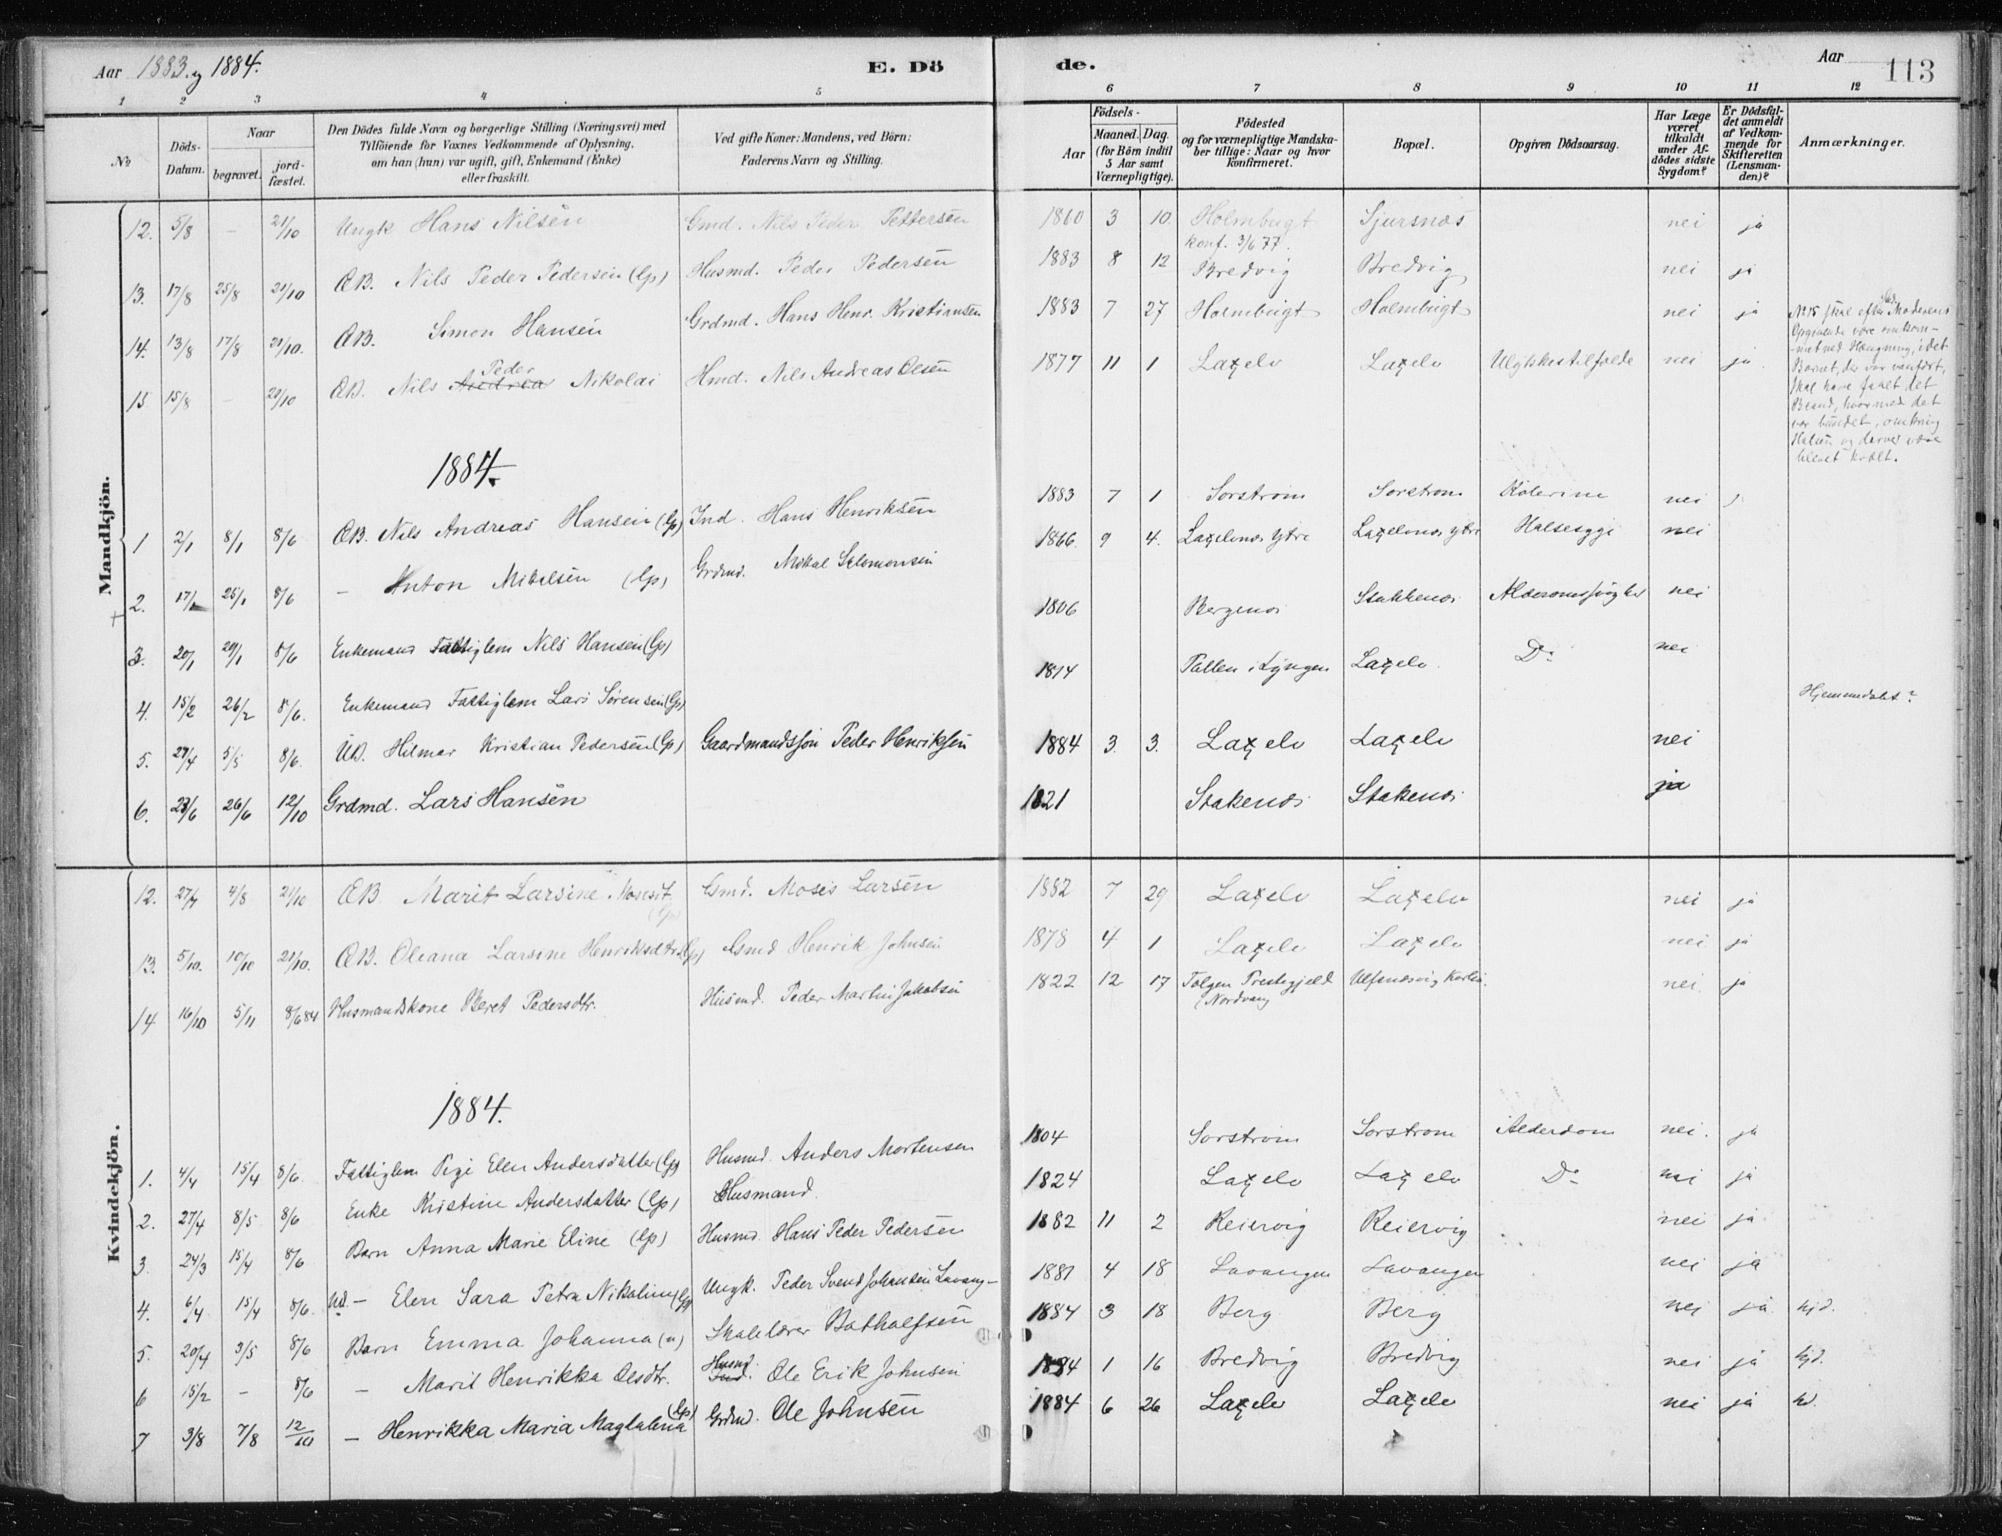 Aar 1883 og 1884.
E. Dö
de.
Aar
113
1 2 3 4 5 6 7 8 9 10 11 12
No
Döds-Datum.
Naar
begravet.
jord-fæstet.
Den Dödes fulde Navn og borgerlige Stilling (Næringsvei) med
Tilföiende for Voxnes Vedkommende af Oplysning,
om han (hun) var ugift, gift, Enkemand (Enke)
eller fraskilt.
Ved gifte Koner: Mandens, ved Börn:
Faderens Navn og Stilling.
Födsels-
Aar
Maaned. Dag.
(for Børn indtil
5 Aar samt
Værnepligtige).
Födested
og for værnepligtige Mandska-
ber tillige: Naar og hvor
konfirmeret.
Bopæl.
Opgiven Dödsaarsag.
Har Læge
været
tilkaldt
under Af-
dödes sidste
Sygdom?
Er Dödsfal-
det anmeldt
af Vedkom-
mende for
Skifteretten
(Lensman-
den)?
Anmærkninger.
Mandkjön.
12. 5/8 - 21/10 Ungk Hans Nilsen Gmd. Nils Peder Pettersen 1860 3 10. Holmbugt Sjursnæs nei ja
konf. 3/6 77.
13. 17/8 25/8 21/10 ÆB. Nils Peder Pedersen (Lp) Husmd. Peder Pedersen 1883 8 12 Bredvig Bredvig nei ja
14. 13/8 17/8 21/10. ÆB. Simon Hansen Grdmd. Hans Henr. Kristiansen 1883 7 27 Holmbugt Holmbugt nei ja
15. 15/8 - 21/10 ÆB. Nils Andrea Peder Nikolai Hmd. Nils Andreas Olsen 1877 11 1 Laxelv Laxelv Ulykkestilfælde nei ja
No 15 skal efter Moderens
Opgivende være omkom-
met ved Hængning, idet
Barnet, der var vanført,
skal have faaet det
Baand, hvormed det
var bundet, omkring
Halsen og derved være
blevet kvalt.
1884.
1 2/1 8/1 8/6 ÆB. Nils Andreas Hansen (Lp) Ind. Hans Henriksen 1883 7 1 Sorstrøm Sorstrom Kolerine nei
2. 17/1 25/1 8/6 - Anton Mikalsen (Lp) Grdmd. Mikal Salomonsen 1866. 9 4. Laxelvnes Ytre Laxelvnes Ytre Halsesyge nei
3. 20/1 29/1 8/6 Enkemand Fattiglem Nils Hansen (Lp) 1806 Bergenes Stakkenes nei
4. 15/2 26/2 8/6. Enkemand Fattiglem Lars Sørensen (Lp) 1814 Pollen i Lyngen Laxelv D: nei
Hjemmedøbt?
5. 27/4 5/5 8/6. UB. Hilmar Kristian Pedersen (Lp) Gaardmandssøn Peder Henriksen 1884 3. 3. Laxelv Laxelv nei
6. 23/6 26/6 12/10 Grdmd. Lars Hansen 1821 Stakenes Stakenes ja
Kvindekjön.
12. 27/7 4/8 21/10 ÆB Marit Larsine Mosesdt. (Lp) Gmd. Moses Larsen 1882 7 29 Laxelv Laxelv nei ja
13. 5/10. 10/10 21/10. ÆB. Oleana Larsine Henriksdtr. (Lp) Gmd Henrik Johnsen 1878 4 1 Laxelv Laxelv nei ja
14 16/10 5/11 8/6 84 Husmandskone Beret Pedersdtr. Husmd. Peder Martin Jakobsen 1822 12 17 Tolgen Prestegjæld Ulfsnesvig Karlsø. nei. ja
(Nordvang
1884.
1. 4/4 15/4 8/6 Fattiglem Pige Elen Andersdatter (Lp) Husmd. Anders Mortensen 1804 Sorstrøm Sorstrom Alderdom nei. ja
2. 27/4 8/5 8/6 Enke Kristine Andersdatter (Lp) Husmand. 1824 Laxelv Laxelv D: nei ja
3. 24/3 15/4 8/6 Barn Anna Marie Eline (Lp) Husmd. Hans Peder Pedersen 1882 11 2 Reiervig Reiervig nei ja
4. 6/4 15/4 8/6. - Elen Sara Petra Nikoline (Lp) Ungk. Peder Svend Johansen Lavang- 1881 4 18 Lavangen Lavangen nei ja
5. 20/4 3/5 8/6 Barn Emma Johanna (n) Skolelærer Bathalfsen 1884 3 18 Berg Berg nei ja. hjd.
6 15/2 - 8/6 - Marit Henrikka Olsdtr. Husmd. Ind. Ole Erik Johnsen 1884 1 16 Bredvig Bredvig nei ja hjd.
7 3/8 7/8 12/10 - Henrikka Maria Magdalena (Lp) Grdmd. Ole Johnsen 1884 6 26 Laxelv Laxelv nei ja h.